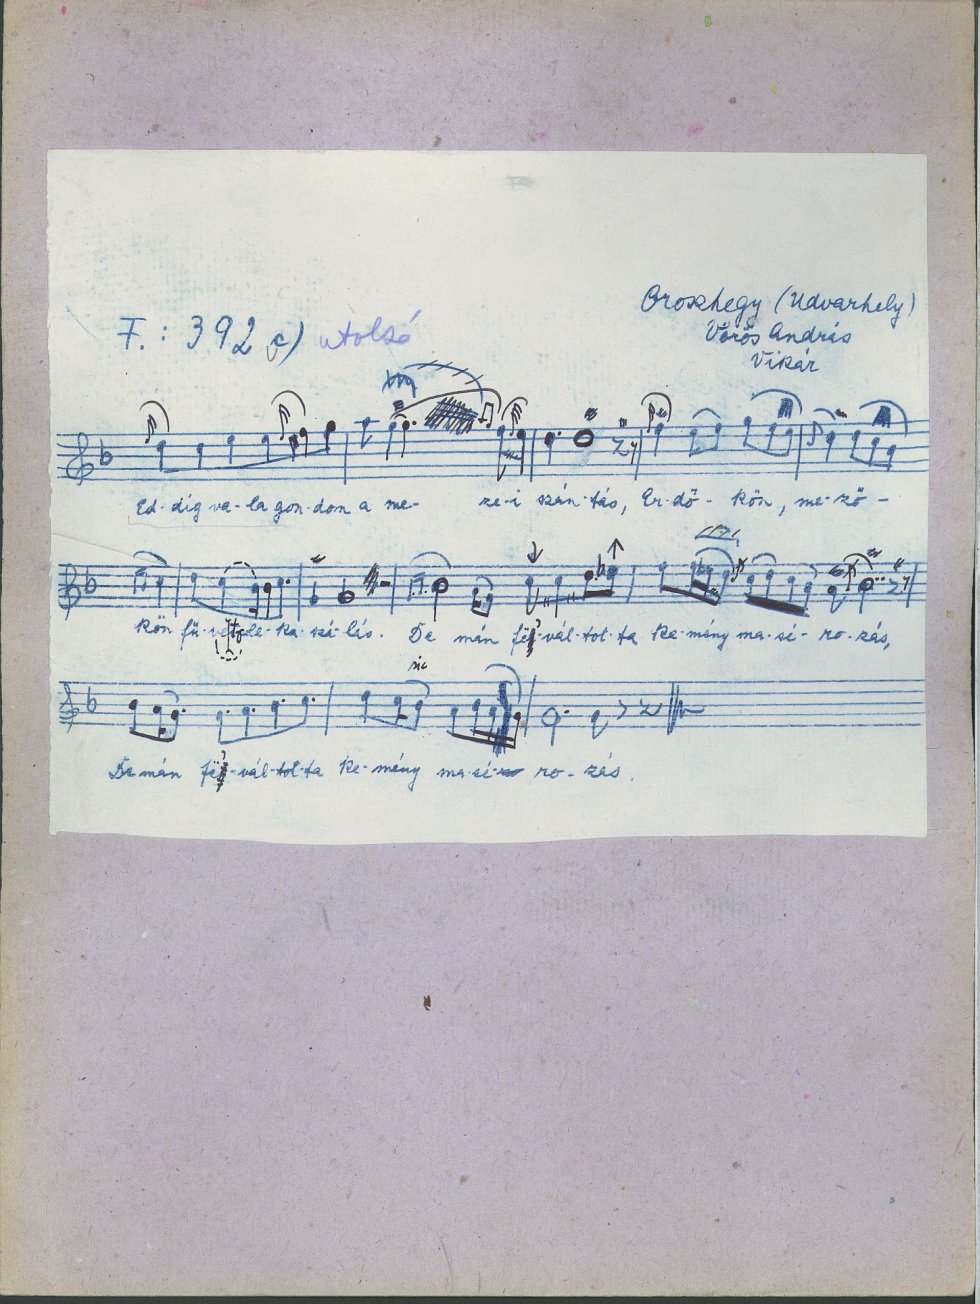 Oroszhegy (Udvarhely)
F.: 392 c) utolsó
Vörös András
Vikár
Ed-dig va-la gon-don a me- ze-i szán-tás, Er-dő- kön, me-ző-
kön fü-vek-de ka-szá-lás. De mán fel-vál-tot-ta ke-mény ma-si-ro-zás,
sic
De mán fel-vál-tot-ta ke-mény ma-si- ro-zás.